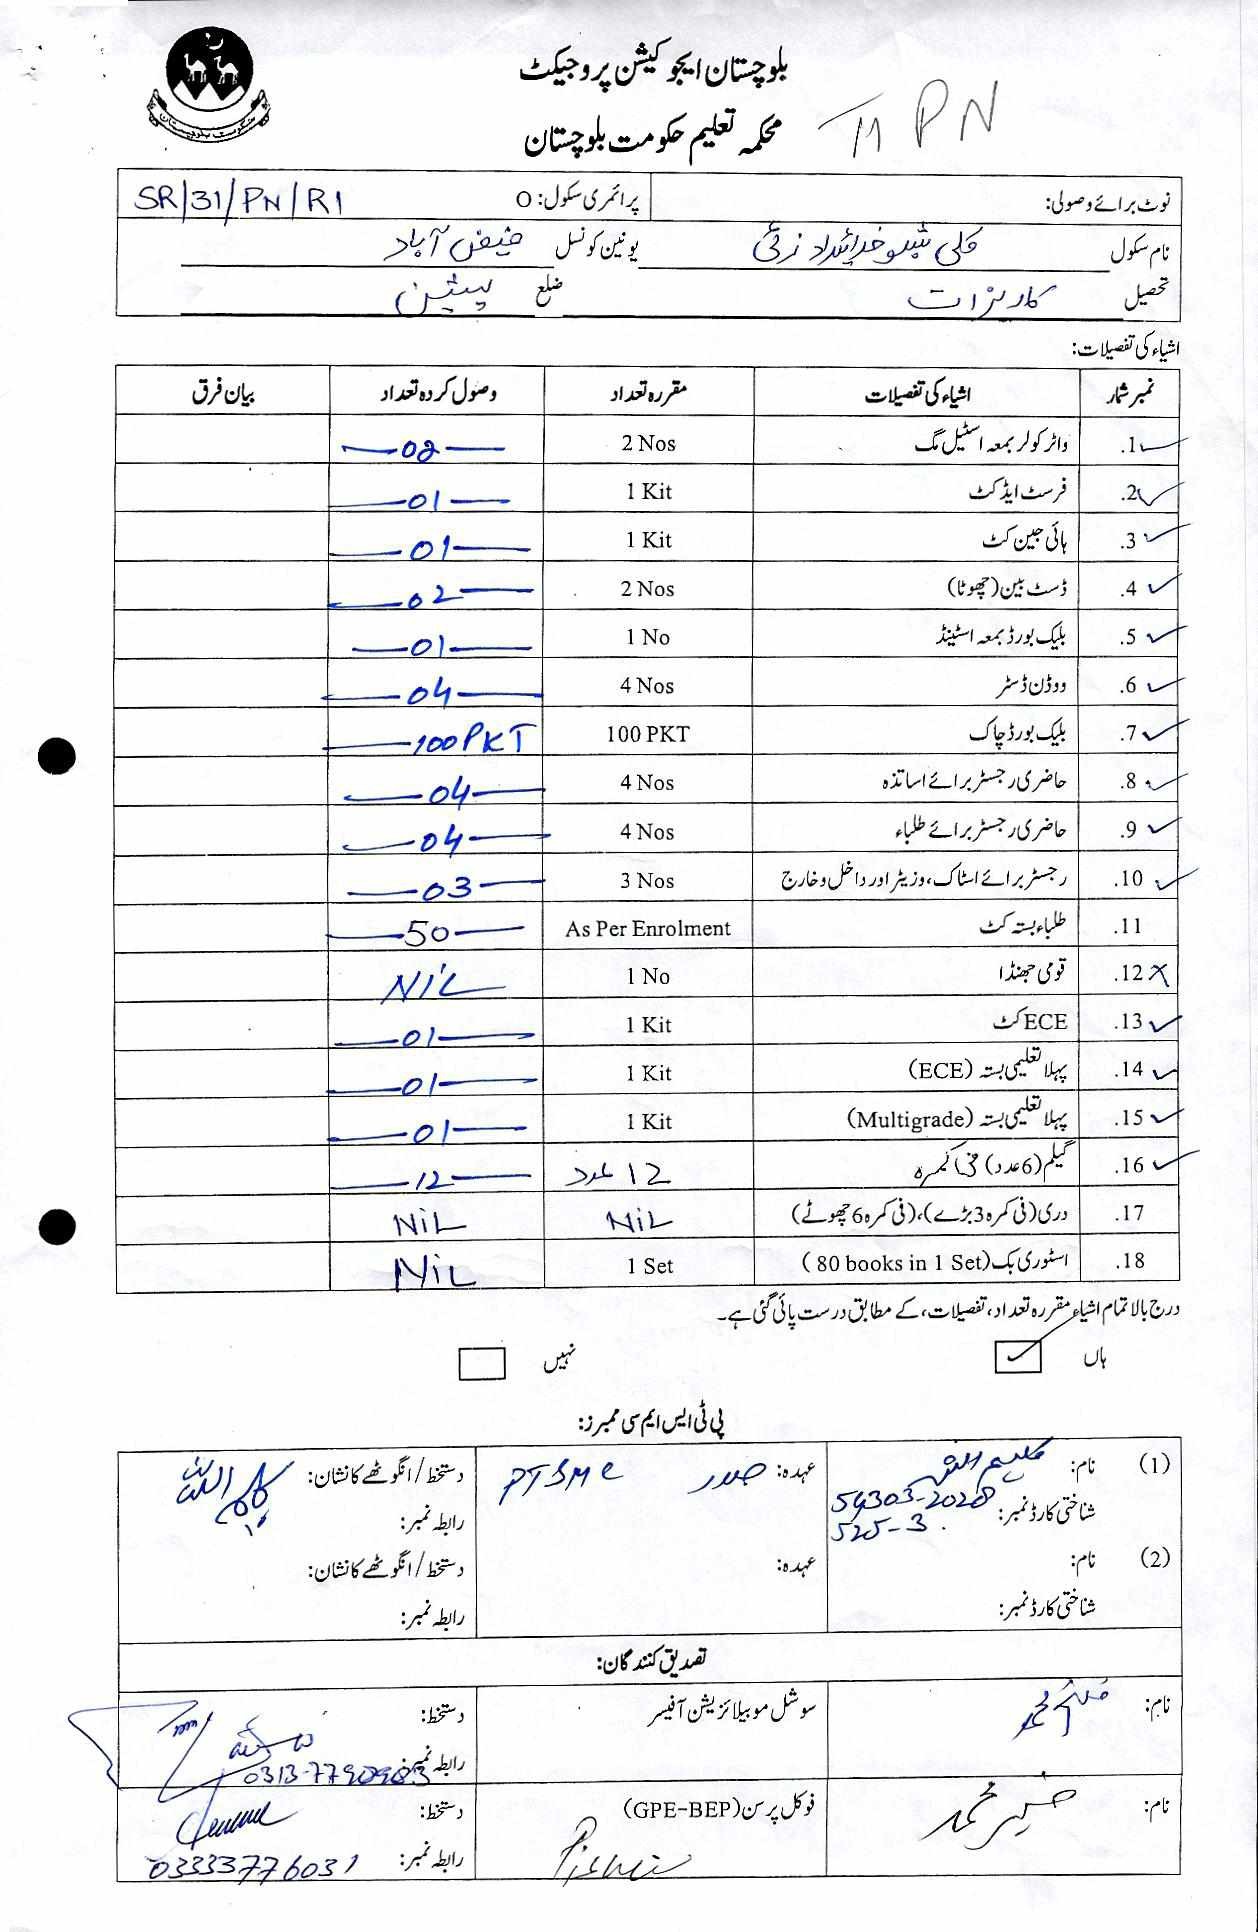 بلوچستان ایجوکیشن پروجیکٹ
محکمہ تعلیم حکومت بلوچستان
PN
نوٹ برائے وصولی: پرائمری سکول: O SR/31/PN/R1
نام سکول کلی خدائیداد زئی یونین کونسل فیض آباد
تحصیل کاریزات ضلع پشین
اشیاء کی تفصیلات:
نمبر شمار اشیاء کی تفصیلات مقررہ تعداد وصول کردہ تعداد بیان فرق
1. واٹر کولر بمعہ اسٹیل مگ 2 Nos 02
2. فرسٹ ایڈ کٹ 1 Kit 01
3. ہائی جین کٹ 1 Kit 01
4. ڈسٹ بین (چھوٹا) 2 Nos 02
5. بلیک بورڈ بمعہ اسٹینڈ 1 No 01
6. ووڈن ڈسٹر 4 Nos 04
7. بلیک بورڈ چاک 100 PKT 100 PKT
8. حاضری رجسٹر برائے اساتذہ 4 Nos 04
9. حاضری رجسٹر برائے طلباء 4 Nos 04
10. رجسٹر برائے اسٹاک، وزیٹر اور داخل و خارج 3 Nos 03
11. طلباء بستہ کٹ As Per Enrolment 50
12. قومی جھنڈا 1 No NiL
13. ECE کٹ 1 Kit 01
14. پہلا تعلیمی بستہ (ECE) 1 Kit 01
15. پہلا تعلیمی بستہ (Multigrade) 1 Kit 01
16. گیلم (6 عدد) فی کمرہ 12 عدد 12
17. دری (فی کمرہ 3 بڑے)، (فی کمرہ 6 چھوٹے) NiL NiL
18. اسٹوری بک (80 books in 1 Set) 1 Set NiL
درج بالا تمام اشیاء مقررہ تعداد، تفصیلات، کے مطابق درست پائی گئی ہے۔
ہاں نہیں
پی ٹی ایس ایم سی ممبرز:
(1) نام: کلیم اللہ عہدہ: صدر PTSMC دستخط/انگوٹھے کا نشان: کلیم اللہ
شناختی کارڈ نمبر: 54303-2028 رابطہ نمبر:
525-3
(2) نام: عہدہ: دستخط/انگوٹھے کا نشان:
شناختی کارڈ نمبر: رابطہ نمبر:
تصدیق کنندگان:
نام: سوشل موبیلائزیشن آفیسر دستخط:
رابطہ نمبر: 0313-7790983
نام: محمد فوکل پرسن (GPE-BEP) دستخط:
Pishin رابطہ نمبر: 03333776031